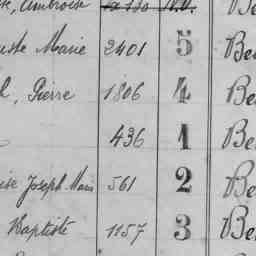 Ambroise
Marie 2401 5 Be
Pierre 1806 4 Be
436 1 Be
Joseph Marie 561 2 Be
Baptiste 1157 3 Be